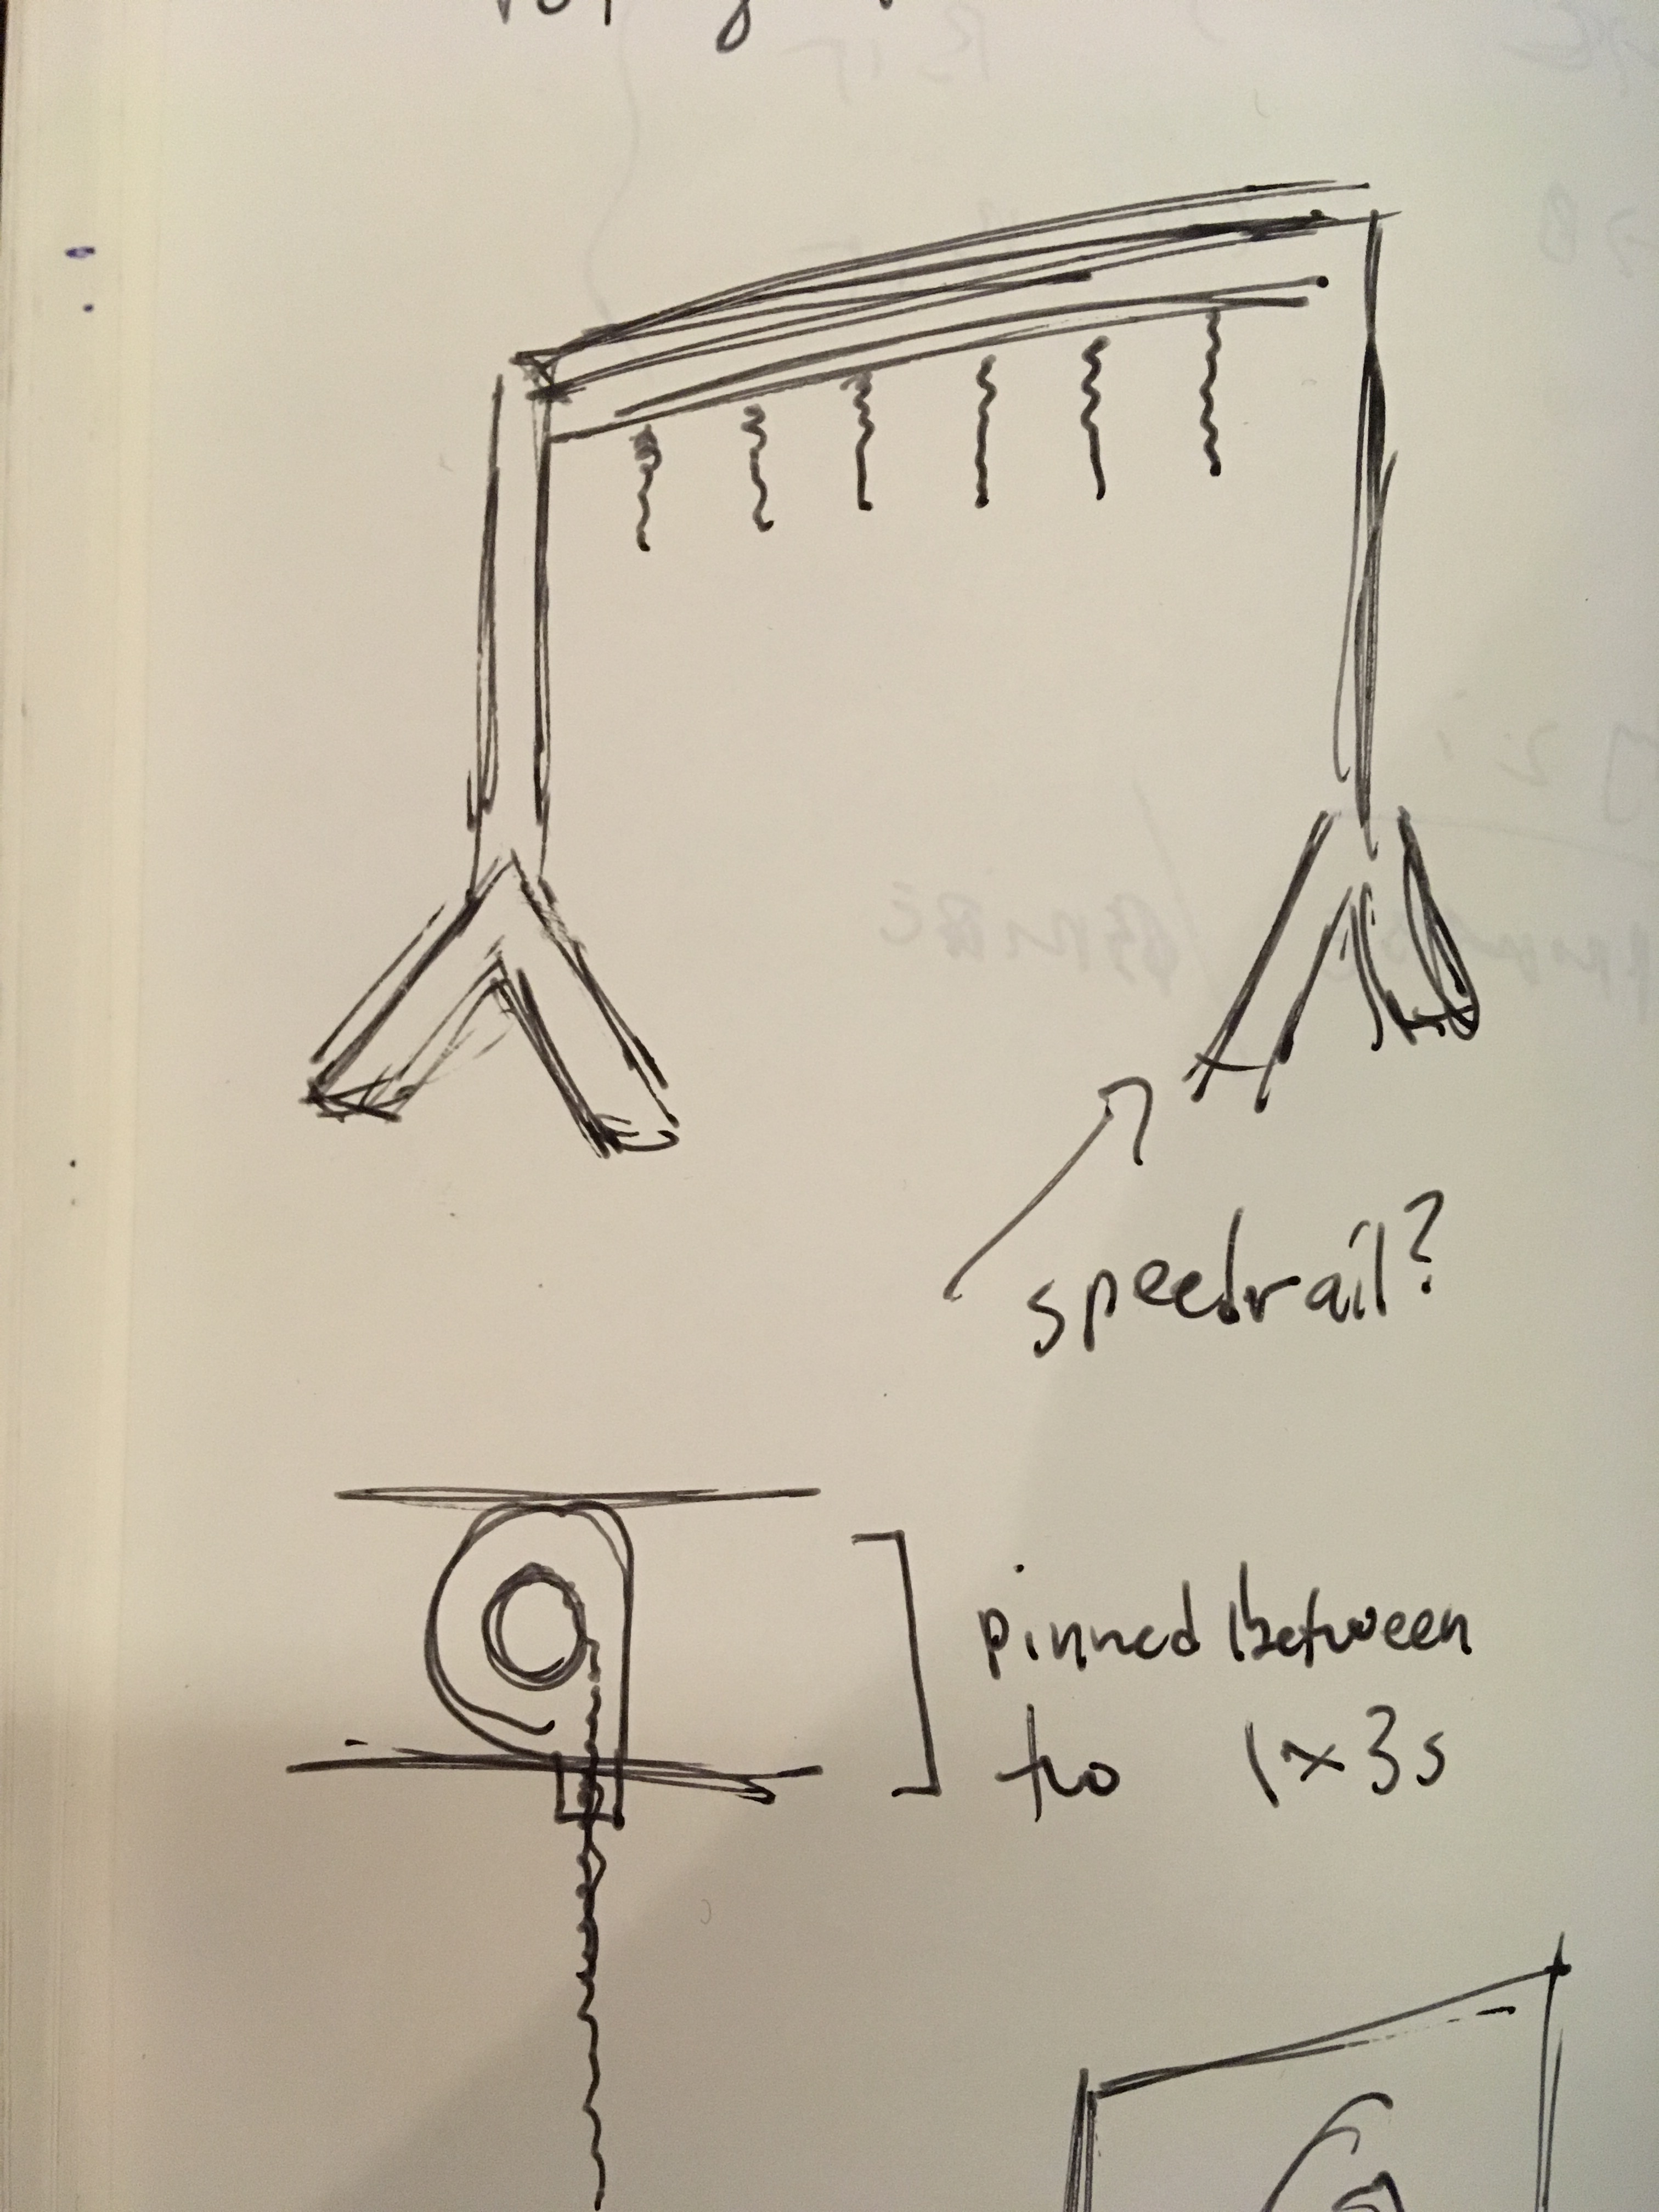 speedrail?
pinned between
two 1x3s